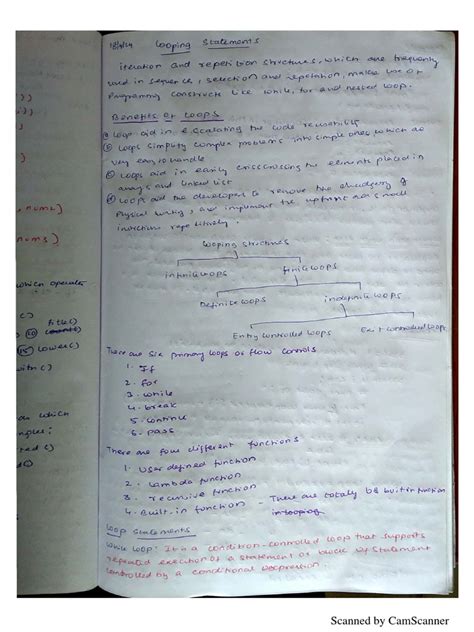 18/4/24 Looping Statements
iteration and repetition structures, which are frequently
used in sequence, selection and repetition, makes use of
Programming constructs like while, for and nested loop.
Benefits of Loops
Loop aid in escalating the code reusability
Loops simplify complex problems into simple ones which are
very easy to handle
Loops aid in easily the elements placed in
arrays and linked list
Loops aid the developers to remove the drudgery of
Physical writing, and implement the a small
repetitively.
Looping structures
infinite loops finite loops
Definite loops indefinite loops
Entry controlled loops Exit controlled loops
There are six primary loops or flow controls
1. If
2. for
3. while
4. break
5. continue
6. pass
There are four different functions
1. User defined function
2. Lambda function
3. recursive function
4. Built-in function - There are totally 68 builtin function
in looping
Loop Statements
While loop: It is a condition-controlled loop that supports
repeated execution of a statement or block of statement
controlled by a conditional expression.
which operator
title()
lower()
which
Scanned by CamScanner